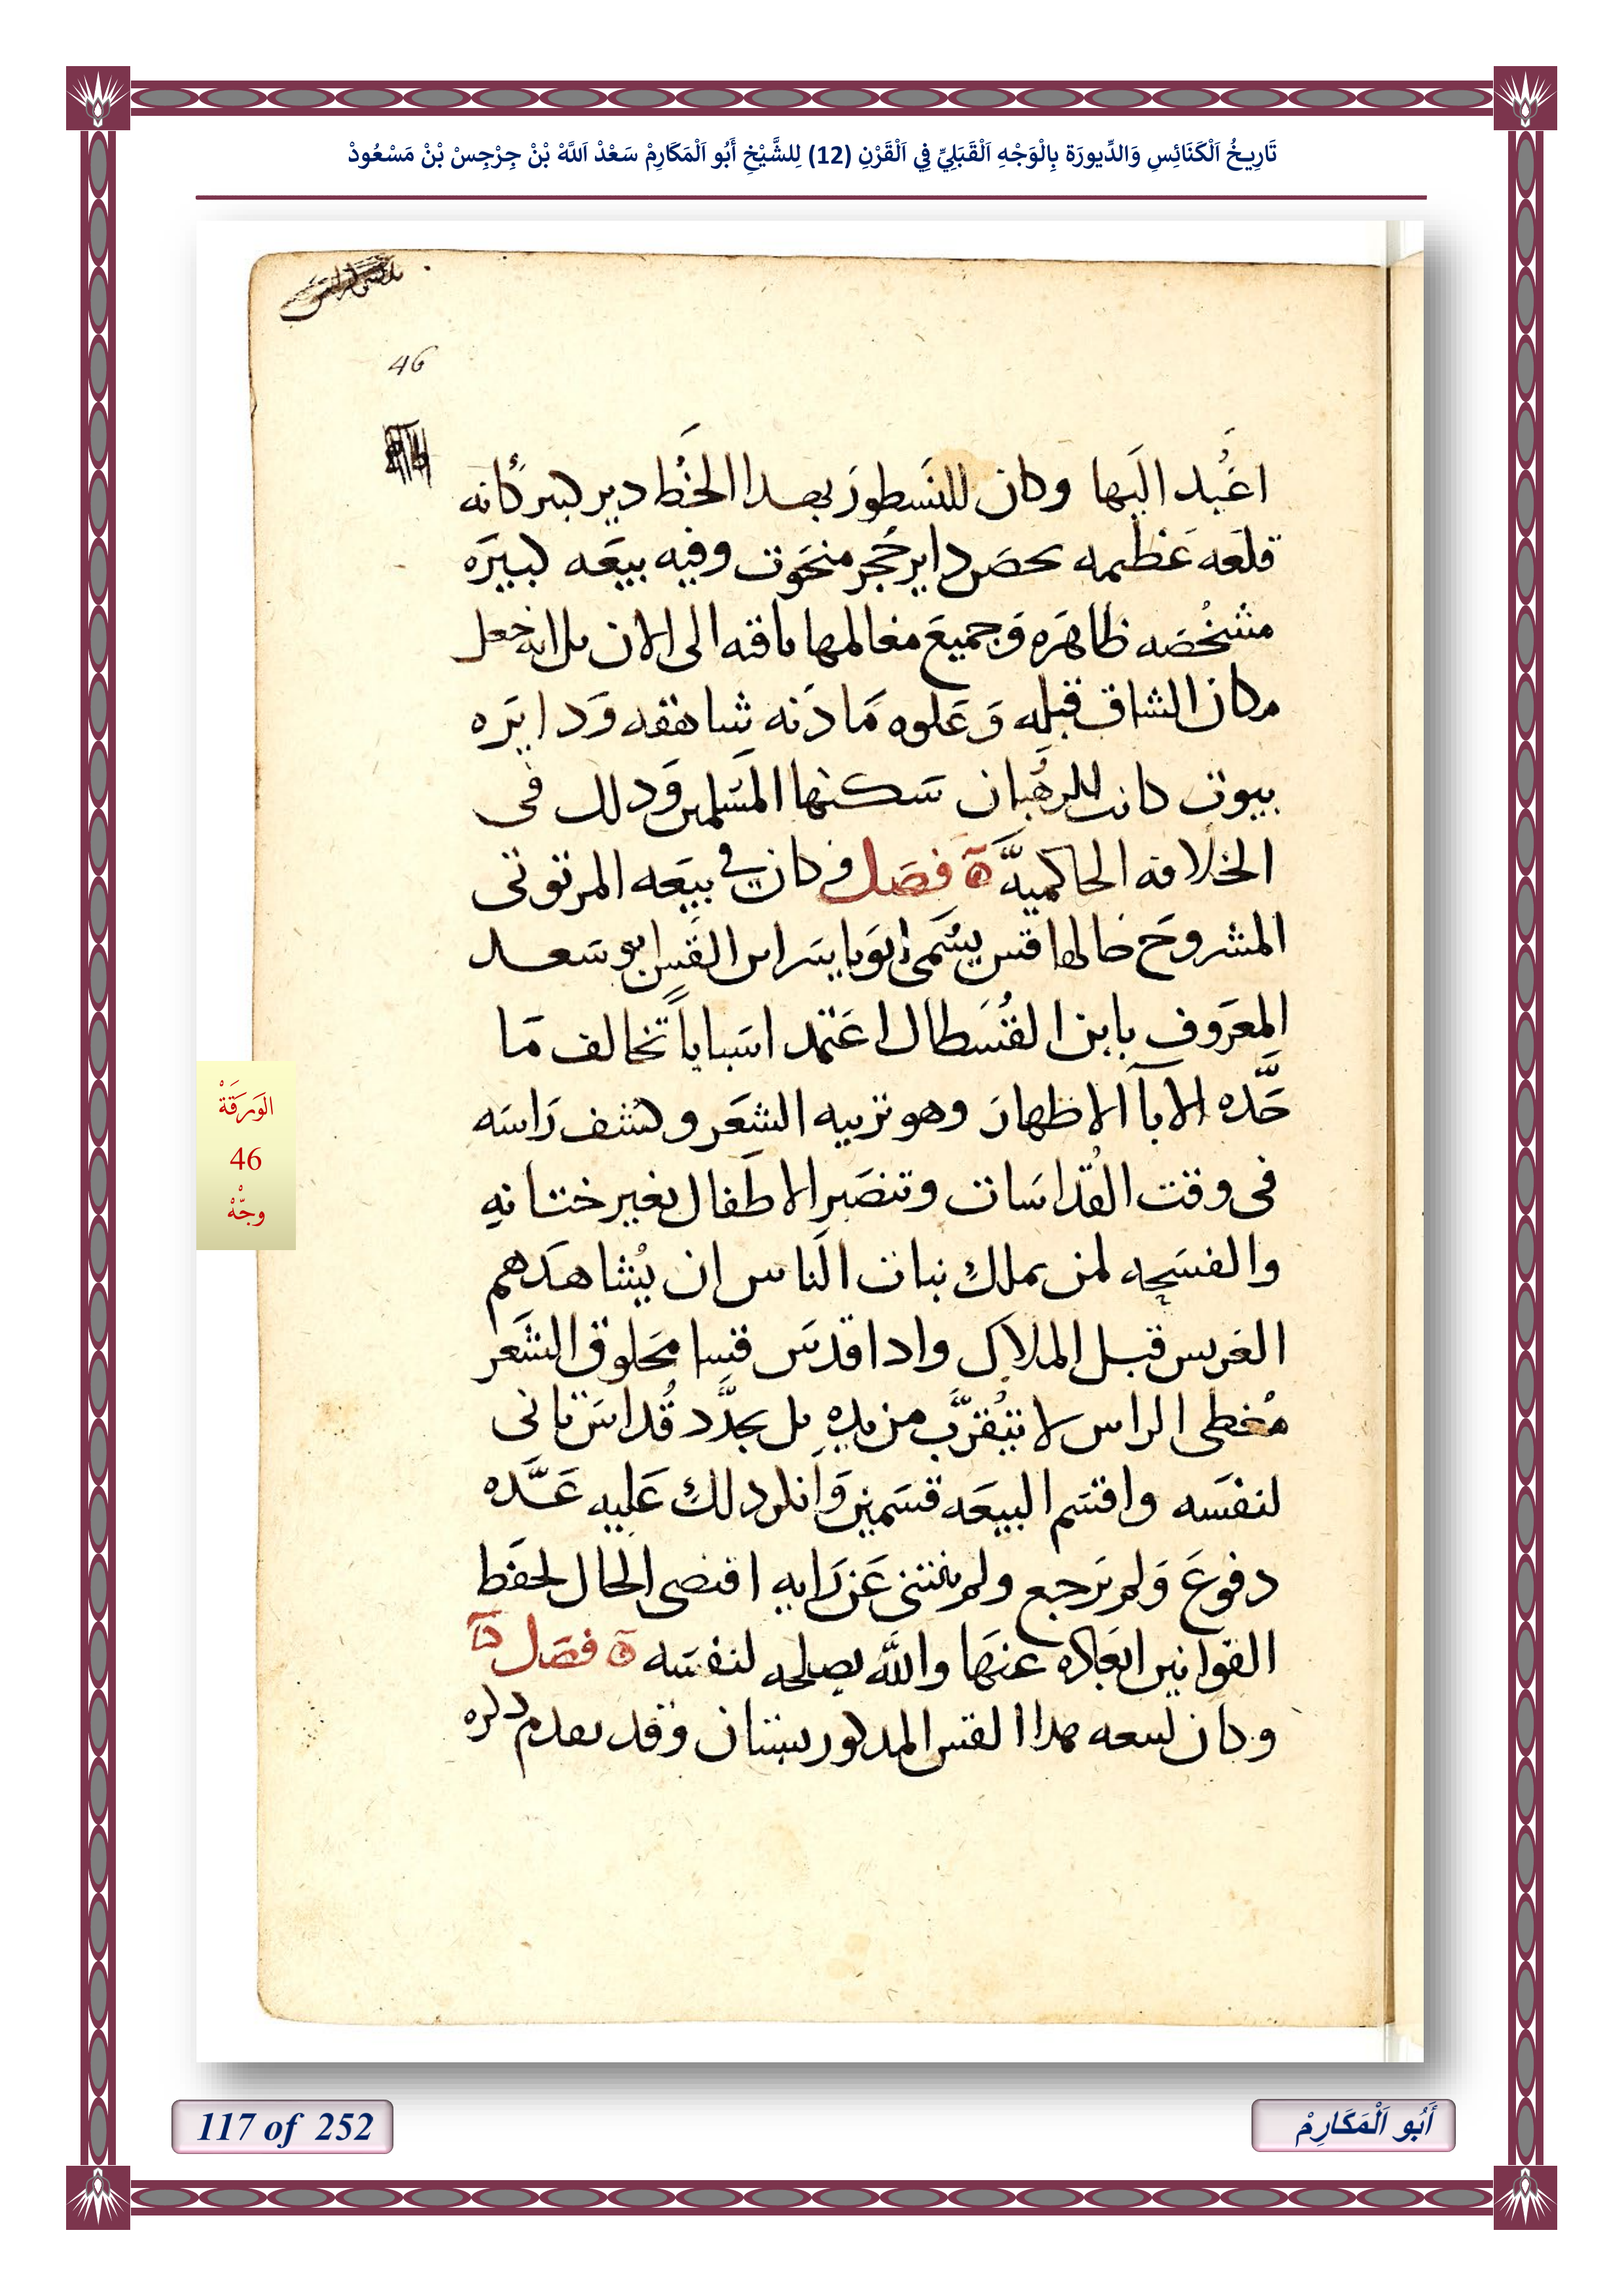 تَارِيخُ اَلْكَنَائِسِ وَالدِّيورَة بِالْوَجْهِ اَلْقَبَلِيِّ فِي اَلْقَرْنِ (12) لِلشَّيْخِ أَبُو اَلْمَكَارِمْ سَعْدْ اَللَّهْ بْنْ جِرْجِسْ بْنْ مَسْعُودْ
46
اعيد اليها وكان للنسطور بهدا الخط دير كبير كانه
قلعه عظيمه بحصن داير حجر منحوت وفيه بيعه كبيره
مشخصه ظاهره وجميع معالمها باقيه الى الان بل انه جعل
مكان الشاق قبله وعلوه مادنه شاهقه ودايره
بيوت كانت للرهبان سكنها المسلمين ودلك فى
الخلافه الحاكميه فصل وكان في بيعه المرتوتى
المشروح حالها قس يسمى ابو ياسر ابن القس ابو سعد
المعروف بابن القسطال اعتمد اسبابا تخالف ما
حدّه الابا الاطهار وهو تربيه الشعر وكشف راسه
فى وقت القداسات وتنصير الاطفال بغير ختانه
والفسحه لمن يملك بنات الناس ان يشاهدهم
العريس قبل الملاك وادا قدس قسا محلوق الشعر
مغطى الراس لا يتقرب من يده بل يجدد قداس تانى
لنفسه واقتسم البيعه قسمين وانكر دلك عليه عدّه
دفوع ولم يرجع ولم ينتنى عن رايه اقتضى الحال لحفظ
القوانين ابعاده عنها والله يصلحه لنفسه فصل
وكان لبيعه هدا القس المدكور بستان وقد تقدم دكره
الوَرَقَةْ
46
وجّهْ
117 of 252
أَبُو اَلْمَكَارِمْ